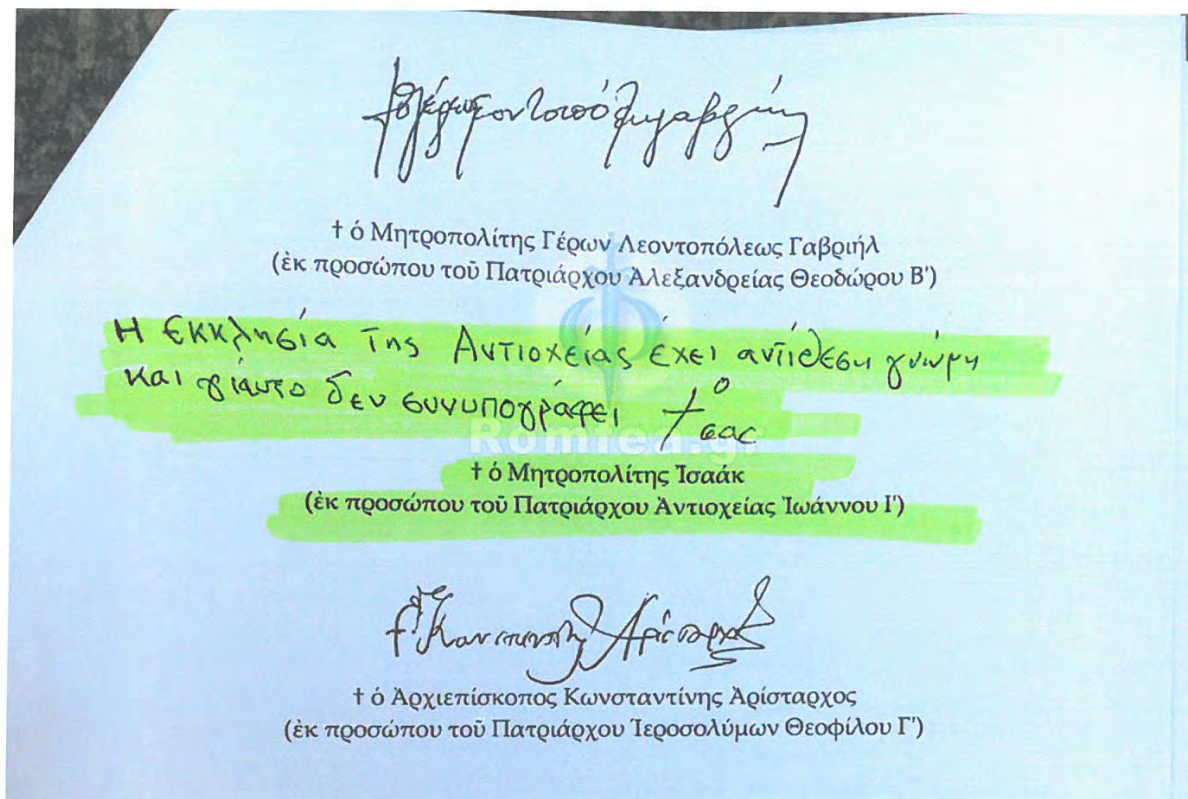 † ὁ Μητροπολίτης Γέρων Λεοντοπόλεως Γαβριήλ
(ἐκ προσώπου τοῦ Πατριάρχου Ἀλεξανδρείας Θεοδώρου Β')
Η Εκκλησία της Αντιοχείας έχει αντίθεση γνώμη
και γιαυτο δεν συνυπογράφει † ο
σας
Romfea.gr
† ὁ Μητροπολίτης Ἰσαάκ
(ἐκ προσώπου τοῦ Πατριάρχου Ἀντιοχείας Ἰωάννου Ι')
Ἀρίσταρχος
† ὁ Ἀρχιεπίσκοπος Κωνσταντίνης Ἀρίσταρχος
(ἐκ προσώπου τοῦ Πατριάρχου Ἱεροσολύμων Θεοφίλου Γ')